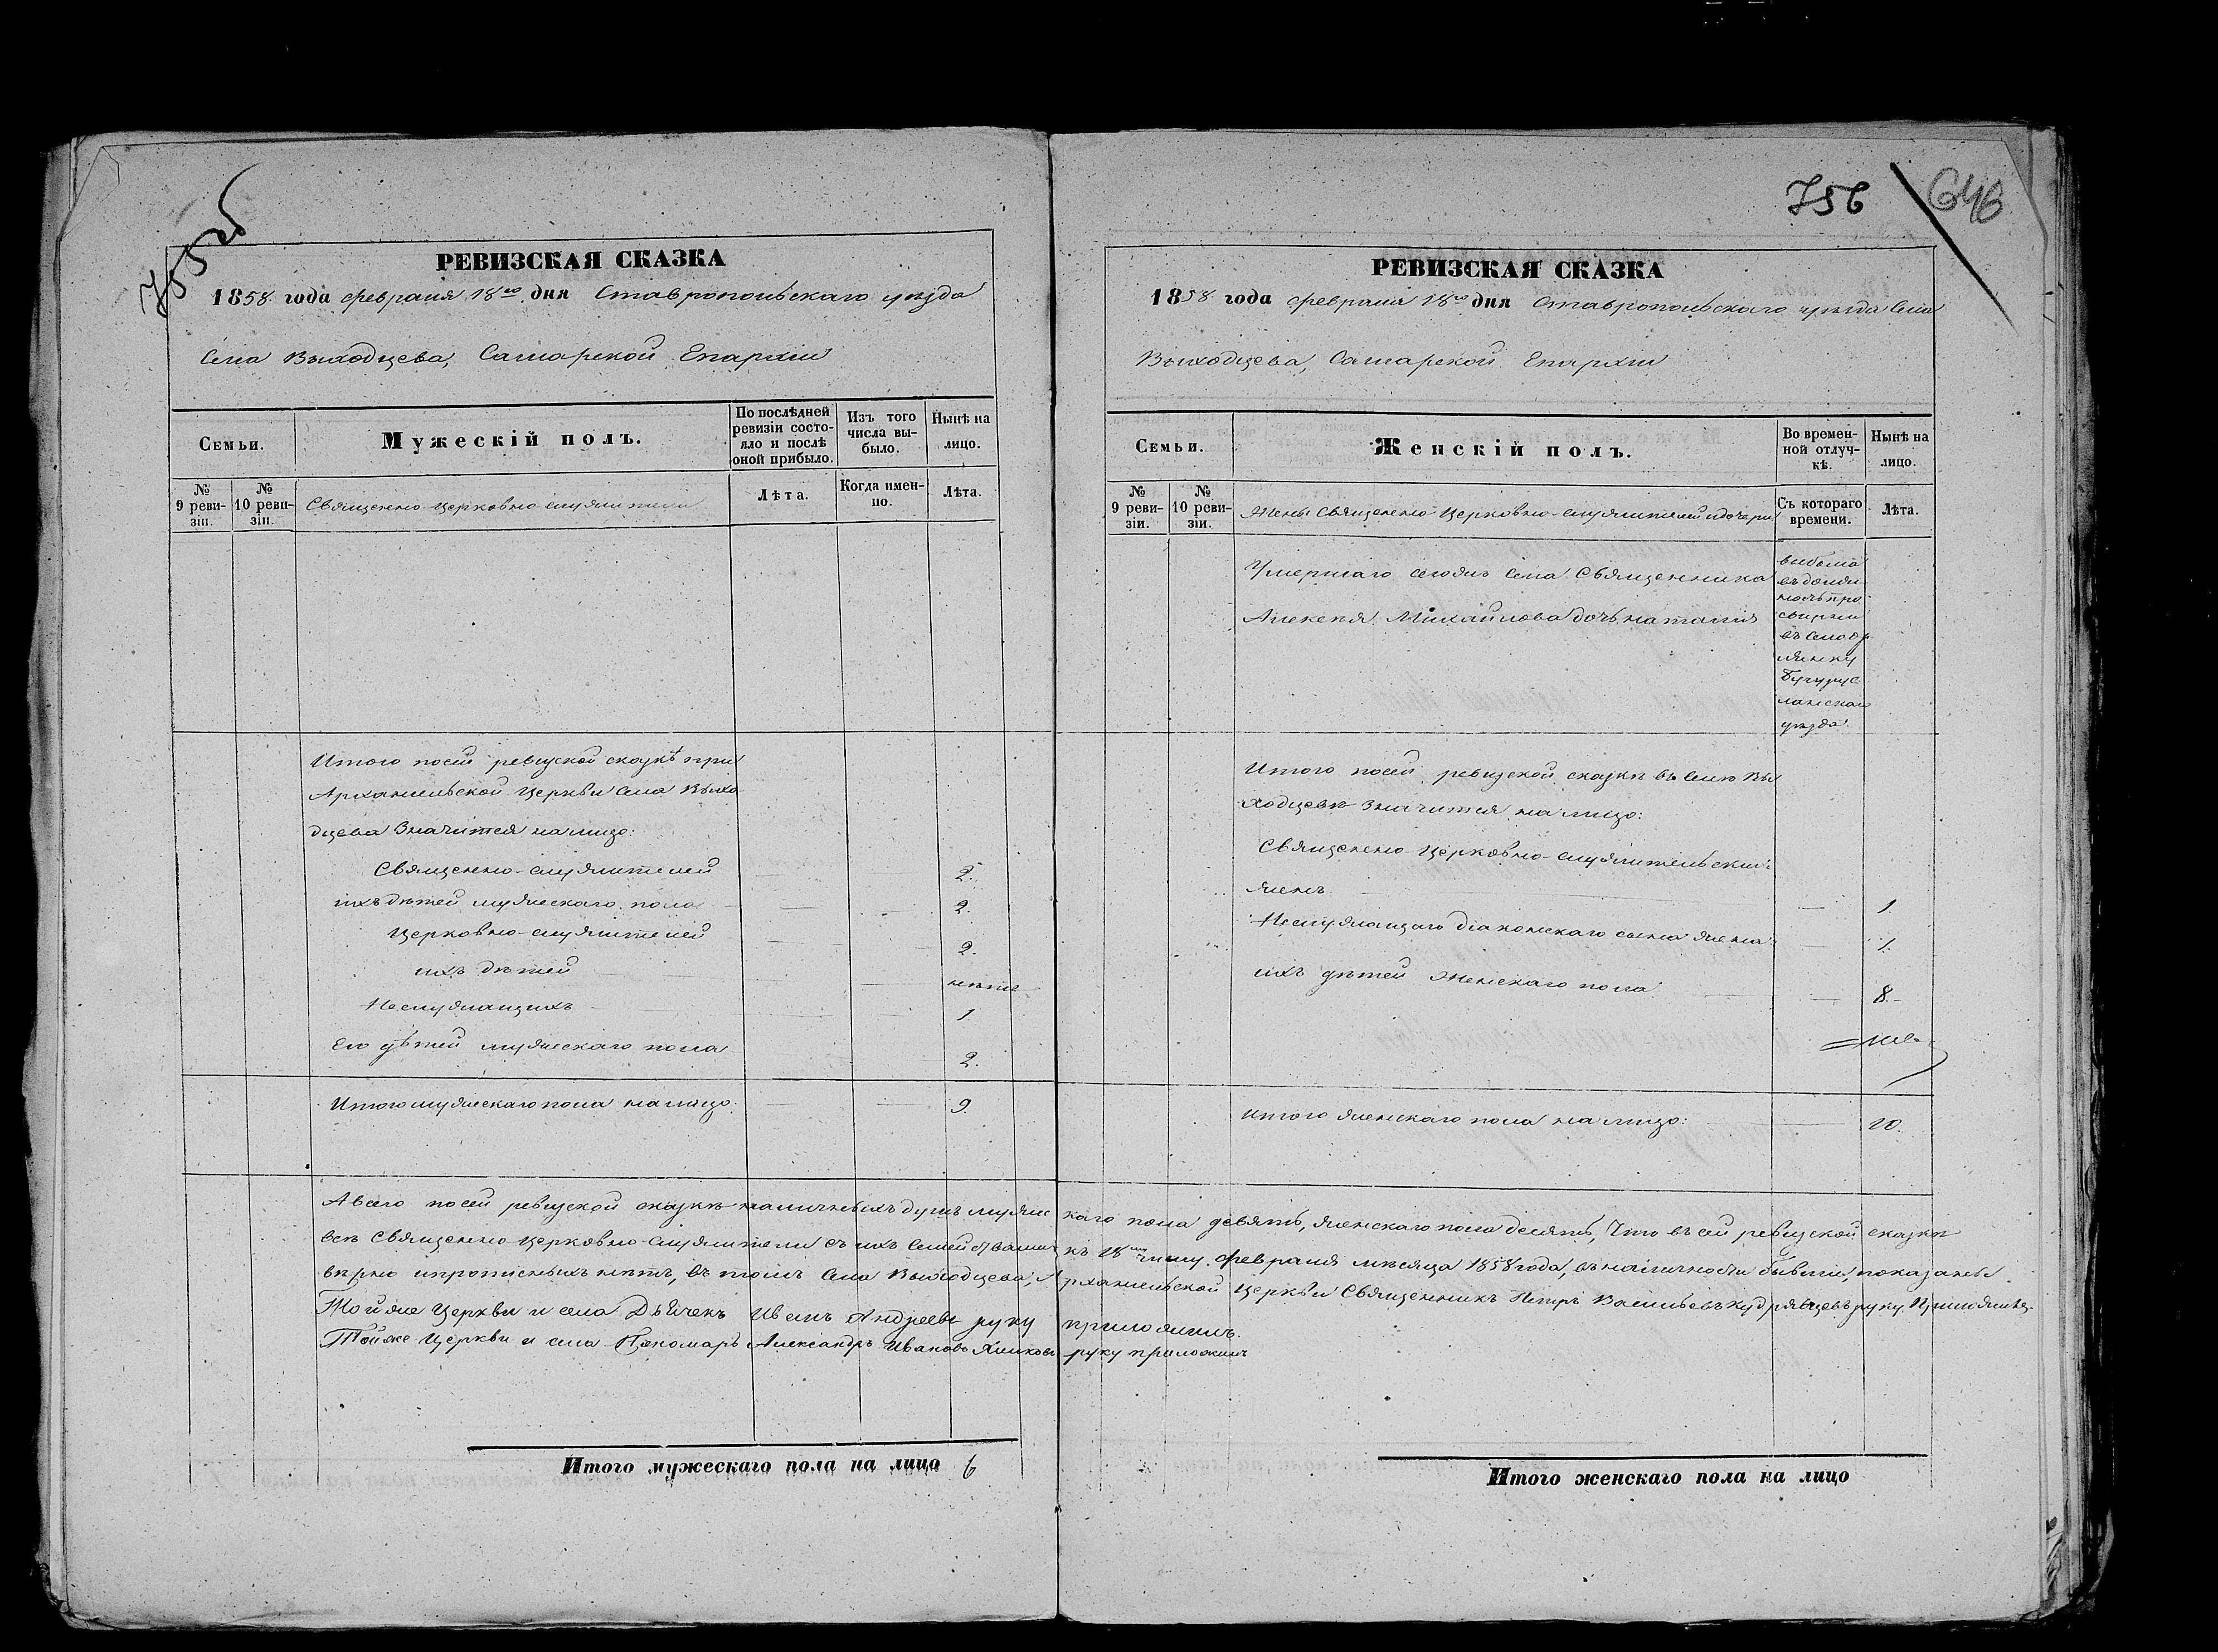 755 об
РЕВИЗСКАЯ СКАЗКА
1858 года февраля 18го дня Ставропольскаго уѣзда
Села Выходцева, Самарской Епархіи
Семьи.
Мужескій полъ.
По послѣдней ревизіи состояло и послѣ оной прибыло.
Изъ того числа выбыло.
Нынѣ на лицо.
№ 9 ревизіи.
№ 10 ревизіи.
Священно-церковно-служители
Лѣта.
Когда именно.
Лѣта.
Итого посей ревизской сказкѣ при
Архангельской Церкви села Выхо
дцева Значится налицо:
Священно-служителей 2.
ихъ дѣтей мужескаго пола 2.
Церковно-служителей 2.
ихъ дѣтей нѣтъ
Неслужащихъ 1
Его дѣтей мужескаго пола 2.
Итого мужескаго пола налицо: 9.
756
646
РЕВИЗСКАЯ СКАЗКА
1858 года февраля 18го дня Ставропольскаго уѣзда Села
Выходцева, Самарской Епархіи
Семьи.
Женскій полъ.
Во временной отлучкѣ.
Нынѣ на лицо.
№ 9 ревизіи.
№ 10 ревизіи.
Жены Священно-Церковно-служителей и дочери
Съ котораго времени.
Лѣта.
Умершаго сегожъ села Священника
Алексѣя Михайлова дочь наталія
выбыла
въ долж
ность про
свирни
въ село
Бугурус
ланскаго
уѣзда.
Итого посей ревизской сказкѣ въ селѣ Вы
ходцевѣ значится на лицо:
Священно-Церковно-служительскихъ
женъ 1.
Неслужащаго діаконскаго сына жена 1.
ихъ дѣтей Женскаго пола 8.
Итого женскаго пола на лицо: 10.
А всего посей ревизской сказкѣ наличныхъ душъ мужес каго пола девять, женскаго пола десять, Что въ сей ревизской сказкѣ
всѣ Священно-Церковно-служители съ ихъ семействами къ 18му числу февраля мѣсяца 1858 года, въ наличности бывшіе, показаны
вѣрно ипрописныхъ нѣтъ, въ томъ Села Выходцева, А рхангельской Церкви Священникъ Петръ Васильевъ Кудрявцевъ руку Приложилъ.
Той же Церкви и села Дьячекъ Иванъ Андреевъ руку приложилъ.
Тойже Церкви и села Пономарь Александръ Ивановъ руку приложилъ
Итого мужескаго пола на лицо 6
Итого женскаго пола на лицо